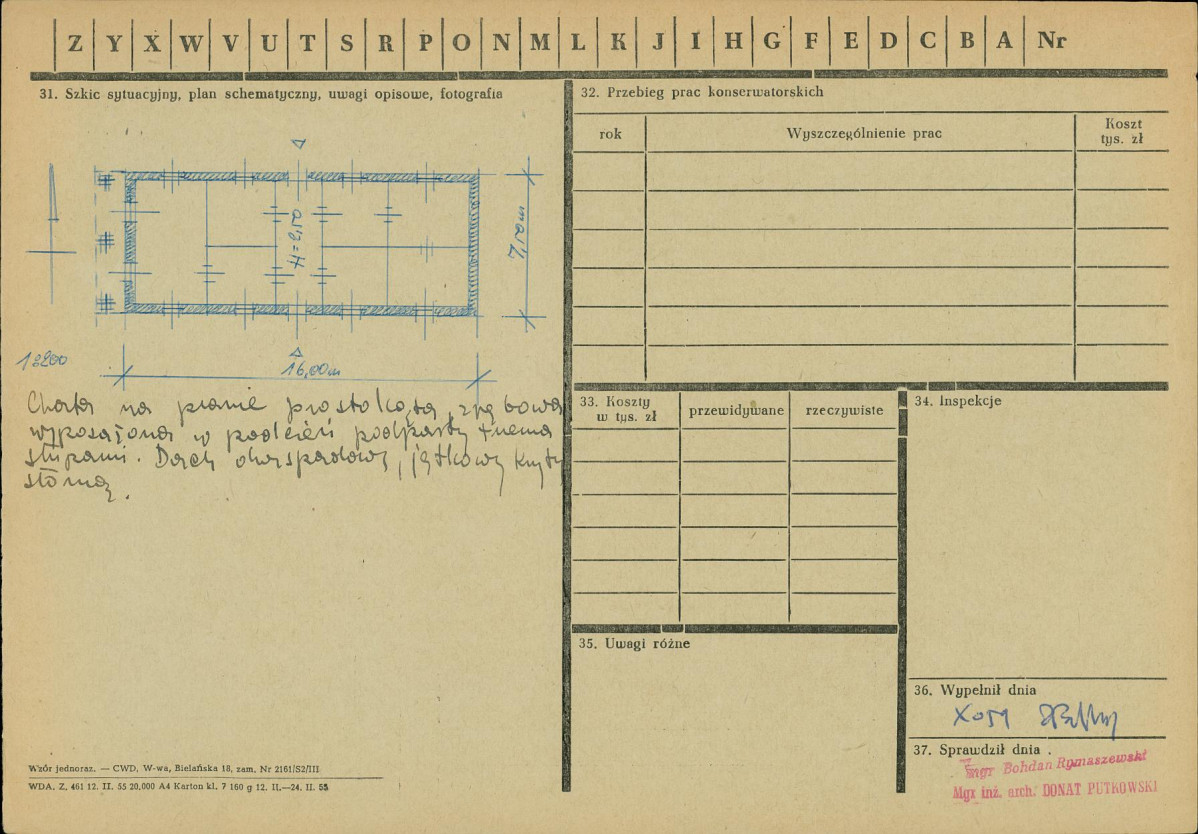 Z Y X W V U T S R P O N M L K J I H G F E D C B A Nr
31. Szkic sytuacyjny, plan schematyczny, uwagi opisowe, fotografia
H=2,50
7,20m
1:200
16,00m
Chata na planie prostokąta, zrębowa
wyposażona w podcień podparty trzema
słupami. Dach dwuspadowy, jętkowy kryty
słomą.
Wzór jednoraz. — CWD, W-wa, Bielańska 18, zam. Nr 2161/S2/III
WDA. Z. 461 12. II. 55 20.000 A4 Karton kl. 7 160 g 12. II.—24. II. 55
32. Przebieg prac konserwatorskich
rok
Wyszczególnienie prac
Koszt
tys. zł
33. Koszty
w tys. zł
przewidywane
rzeczywiste
34. Inspekcje
35. Uwagi różne
36. Wypełnił dnia
37. Sprawdził dnia .
mgr Bohdan Rymaszewski
Mgr inż. arch. DONAT PUTKOWSKI